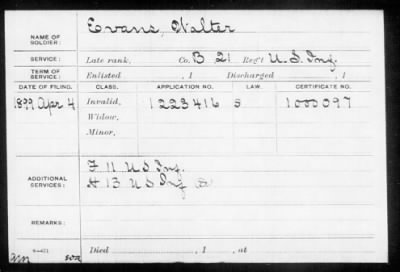 NAME OF SOLDIER: Evans, Walter
SERVICE: Late rank, Co. B 21 Reg't U.S. Inf.
TERM OF SERVICE: Enlisted , 1 Discharged , 1
DATE OF FILING. CLASS. APPLICATION NO. LAW. CERTIFICATE NO.
1899 Apr 4 Invalid, 1223416 S 1000097
Widow,
Minor,
ADDITIONAL SERVICES: F 11 U.S. Inf.
H 13 U.S. Inf
REMARKS:
Died , 1 , at